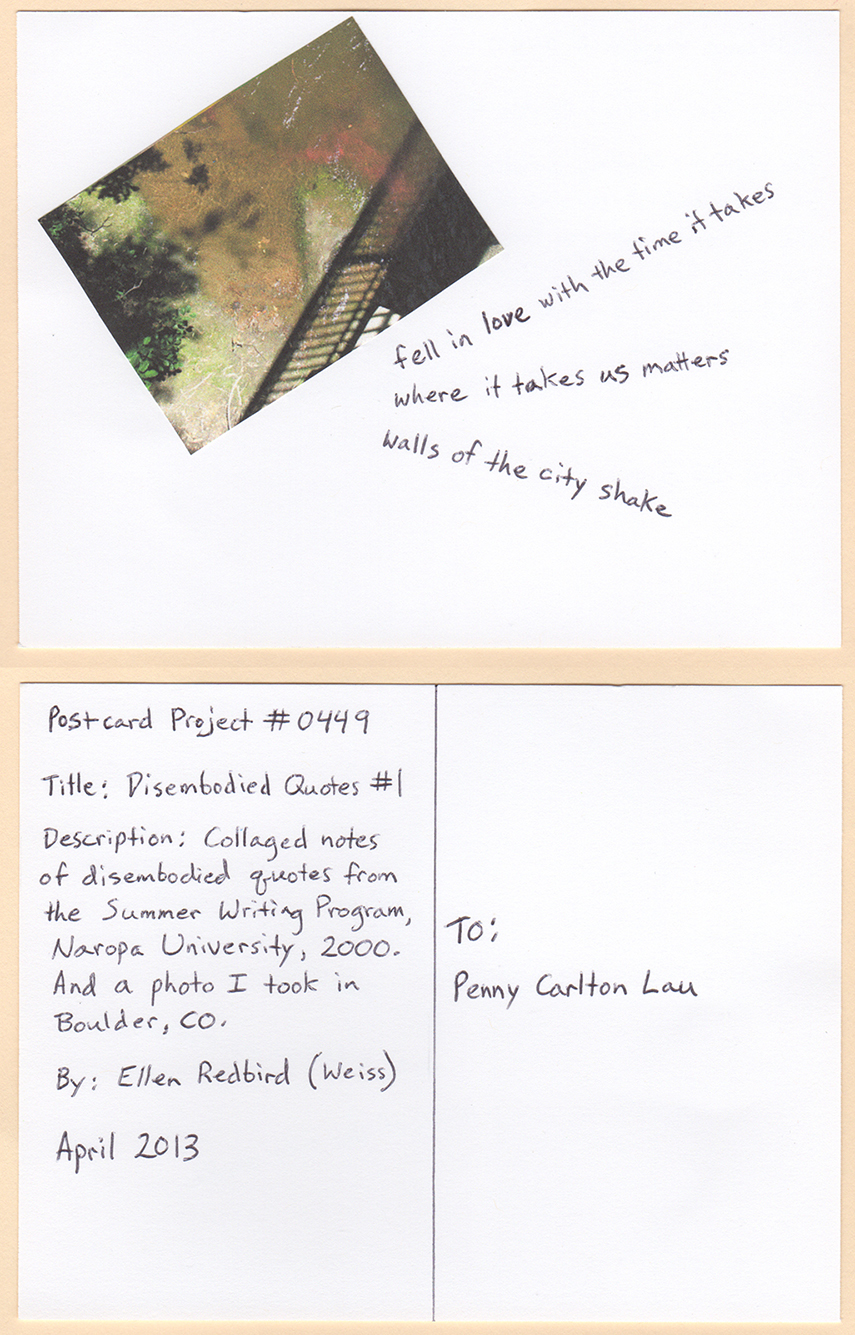 fell in love with the time it takes
where it takes us matters
walls of the city shake
Postcard Project #0449
Title: Disembodied Quotes #1
Description: Collaged notes
of disembodied quotes from
the Summer Writing Program,
Naropa University, 2000.
And a photo I took in
Boulder, CO.
By: Ellen Redbird (Weiss)
April 2013
To:
Penny Carlton Lau